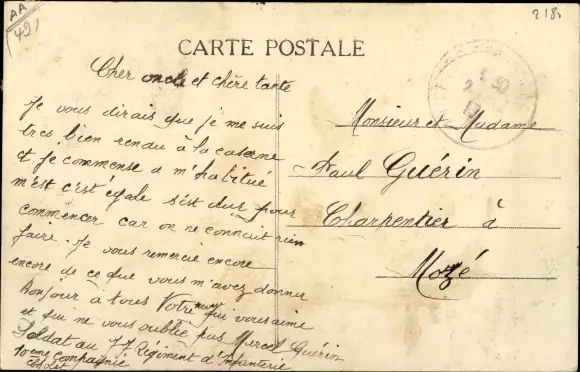 AA
491
218
CARTE POSTALE
Cher oncle et chère tante
Je vous dirais que je me suis
tres bien rendu à la caserne
et je commense a m'habitué
m'est c'est egale s'est dur pour
commencer car on ne connait rien
faire. Je vous remercie encore
encore de ce que vous m'avez donner
Bonjour à tous Votre neveu qui vous aime
et qui ne vous oublie pas Marcel Guérin
Soldat au 77 Régiment d'Infanterie
10eme Compagnie
Cholet
Monsieur et Madame
Paul Guérin
Charpentier à
Mozé